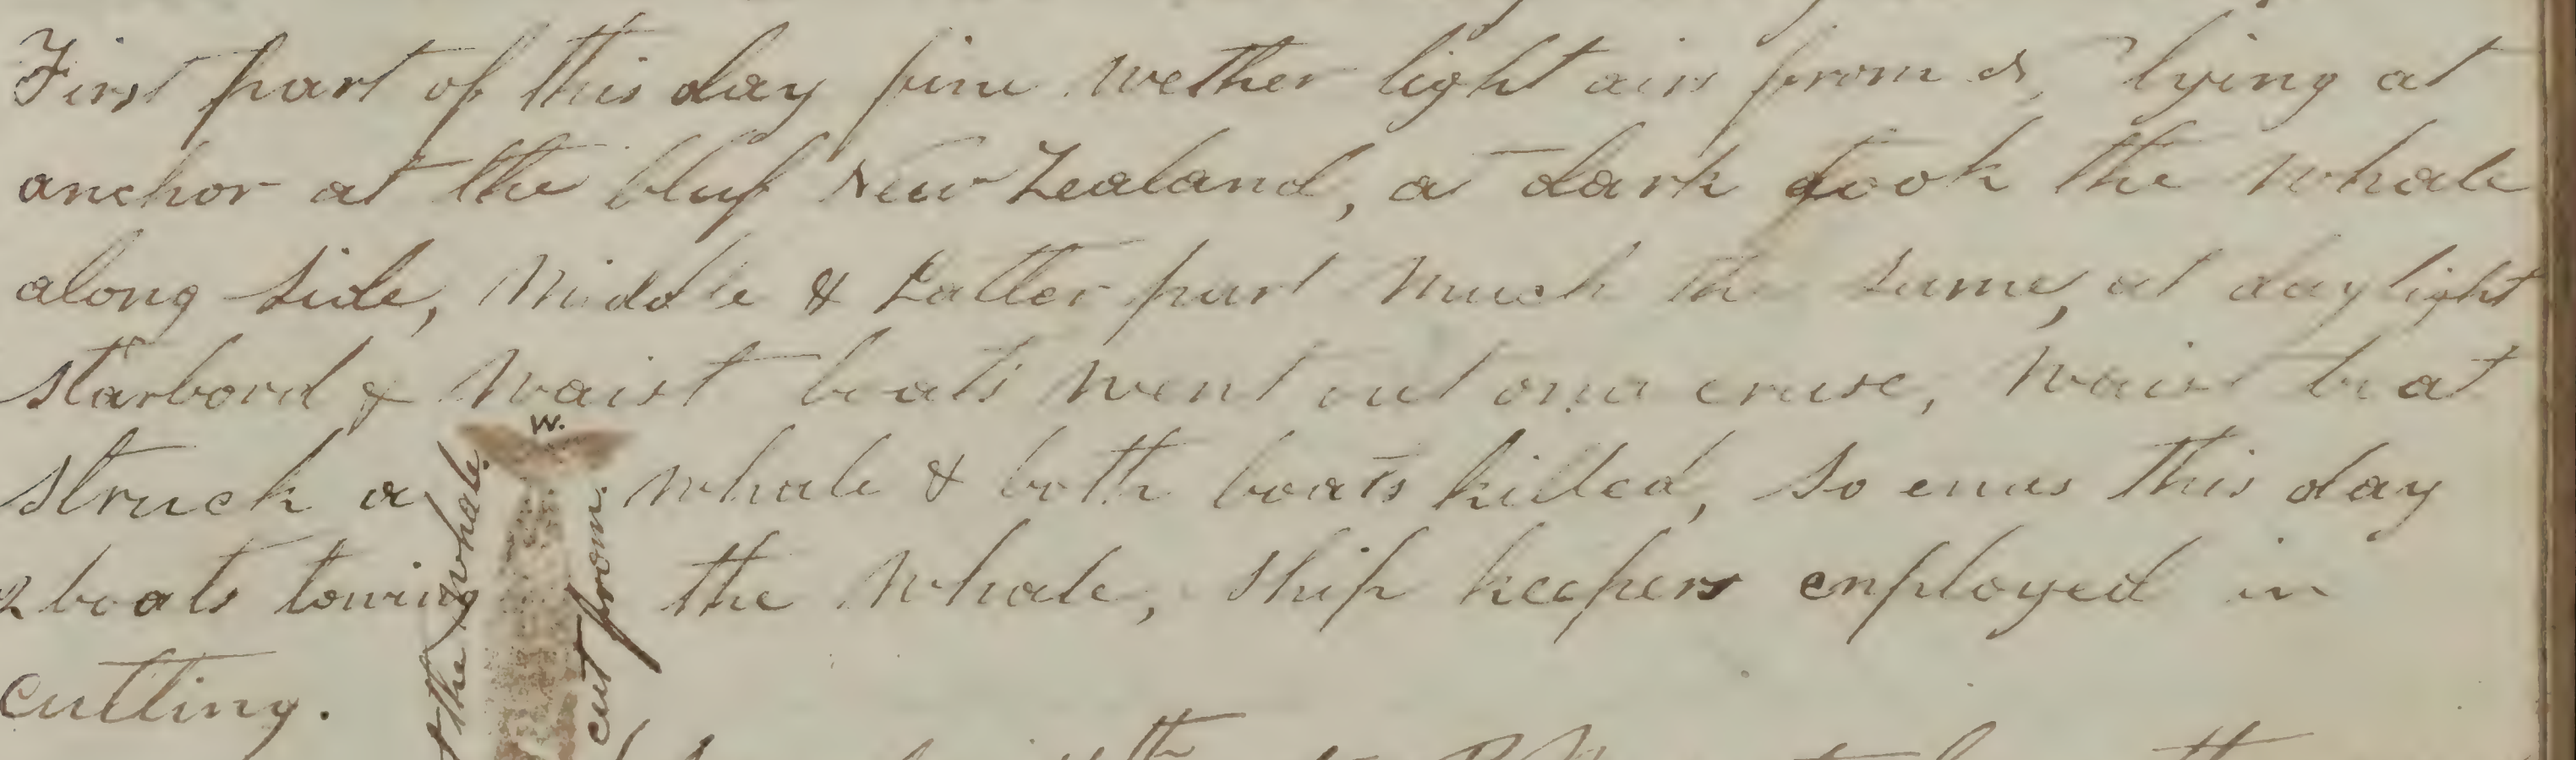 First part of this day fine wether light airs from S, lying at
anchor at the bluf New Zealand, at dark took the whale
along side, Middle & Latter part much the same, at day light
starbord & waist boats went out on a cruse, waist boat
struck a whale & both boats killed, so ends this day
2 boats towing the whale, ship keepers enployed in
cutting.
W.
the whale.
cut from.